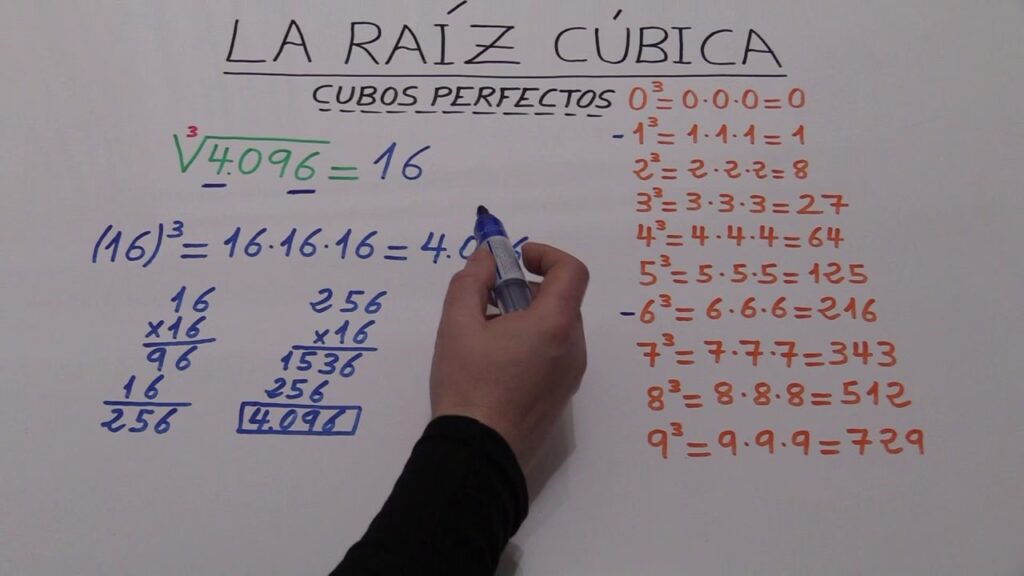 LA RAÍZ CÚBICA
CUBOS PERFECTOS
∛4.096 = 16
(16)³ = 16·16·16 = 4.0
16
×16
96
16
256
256
×16
1536
256
4.096
0³=0·0·0=0
-1³=1·1·1=1
2³=2·2·2=8
3³=3·3·3=27
4³=4·4·4=64
5³=5·5·5=125
-6³=6·6·6=216
7³=7·7·7=343
8³=8·8·8=512
9³=9·9·9=729